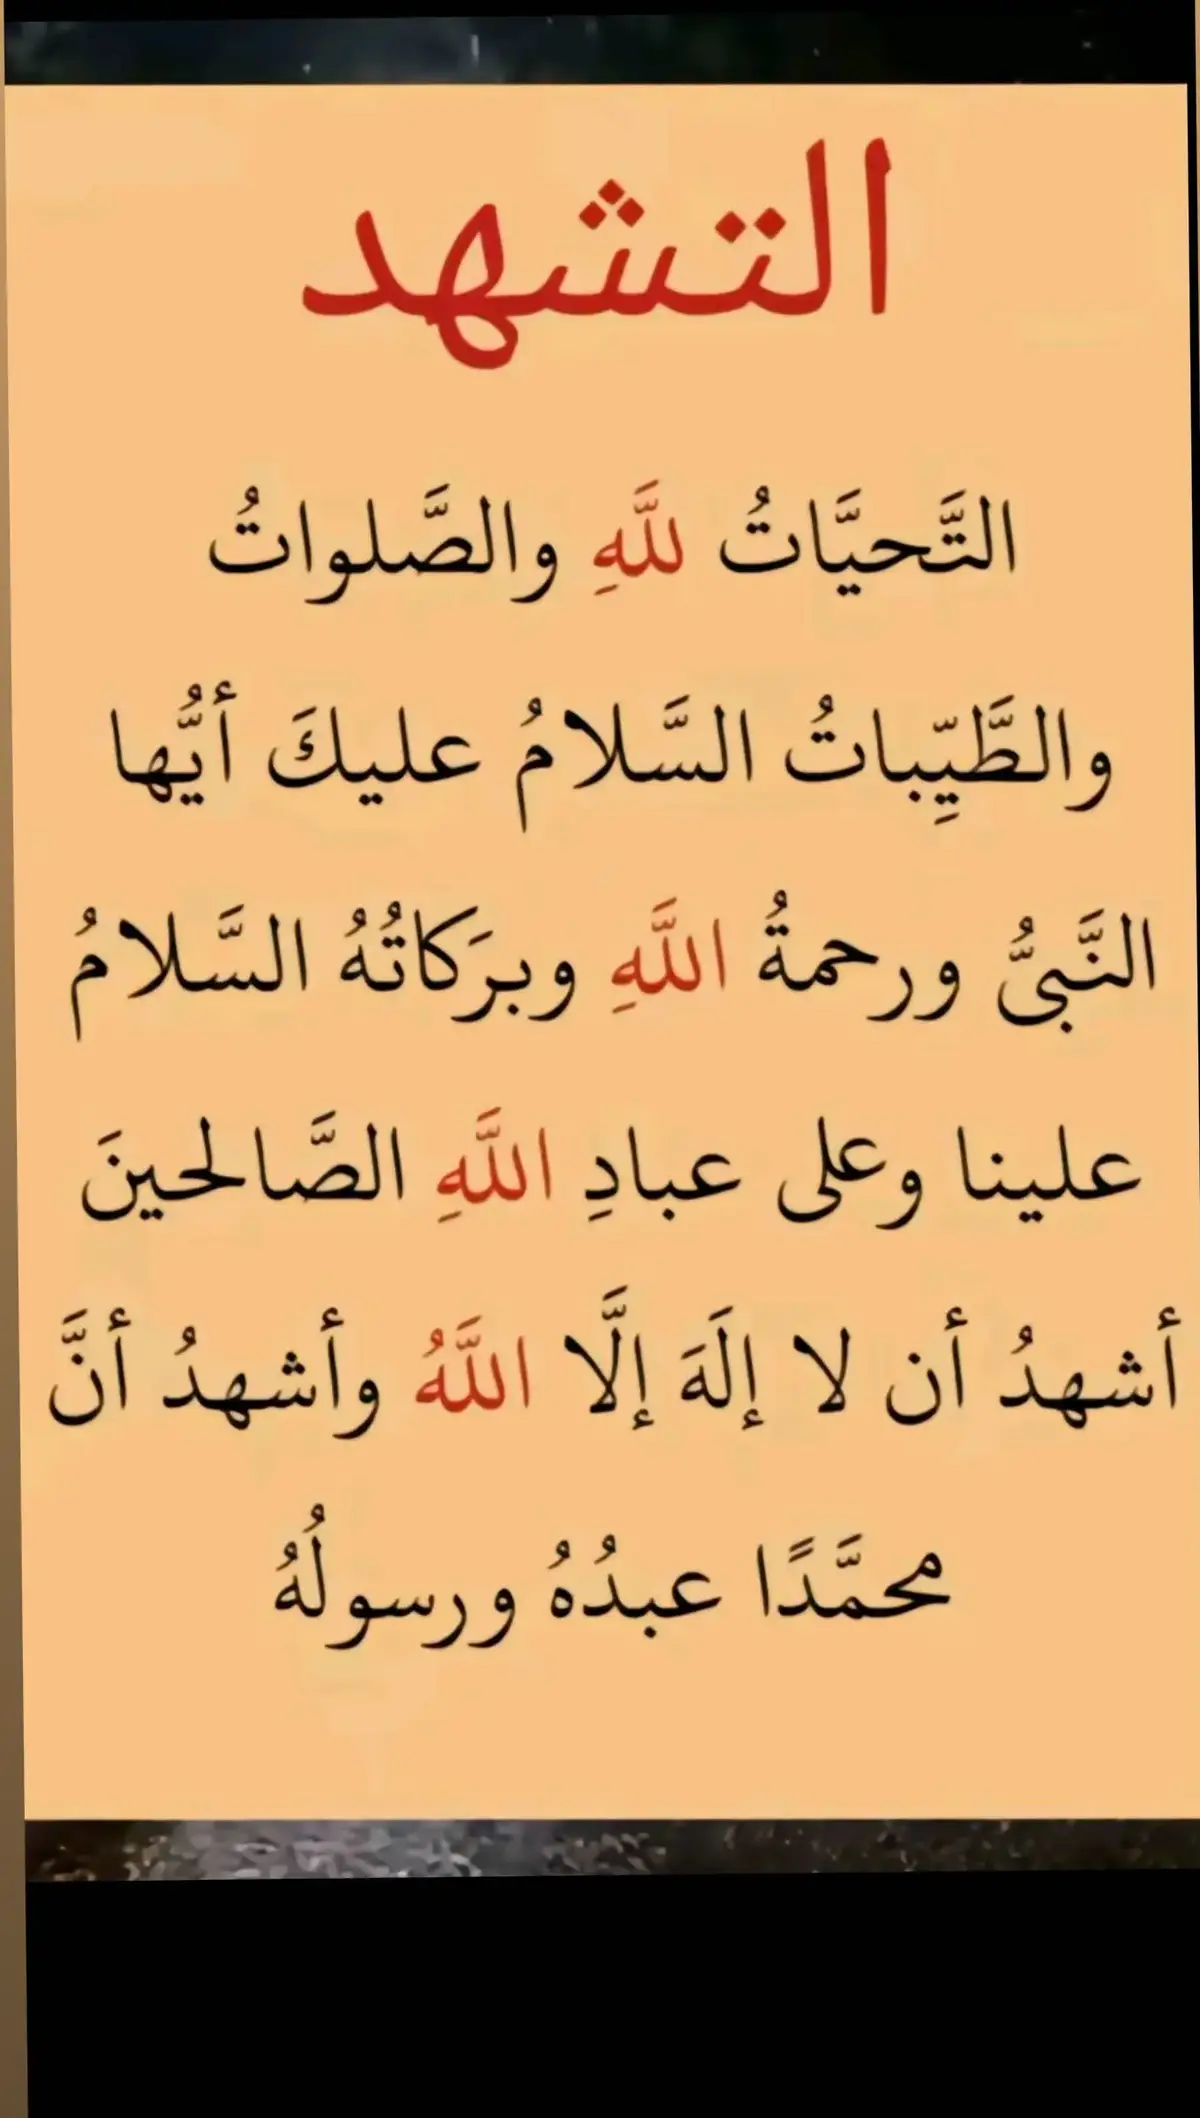 التشهد
التَّحيَّاتُ للَّهِ والصَّلواتُ
والطَّيِّباتُ السَّلامُ عليكَ أيُّها
النَّبيُّ ورحمةُ اللَّهِ وبرَكاتُهُ السَّلامُ
علينا وعلى عبادِ اللَّهِ الصَّالحينَ
أشهدُ أن لا إلَهَ إلَّا اللَّهُ وأشهدُ أنَّ
محمَّدًا عبدُهُ ورسولُهُ